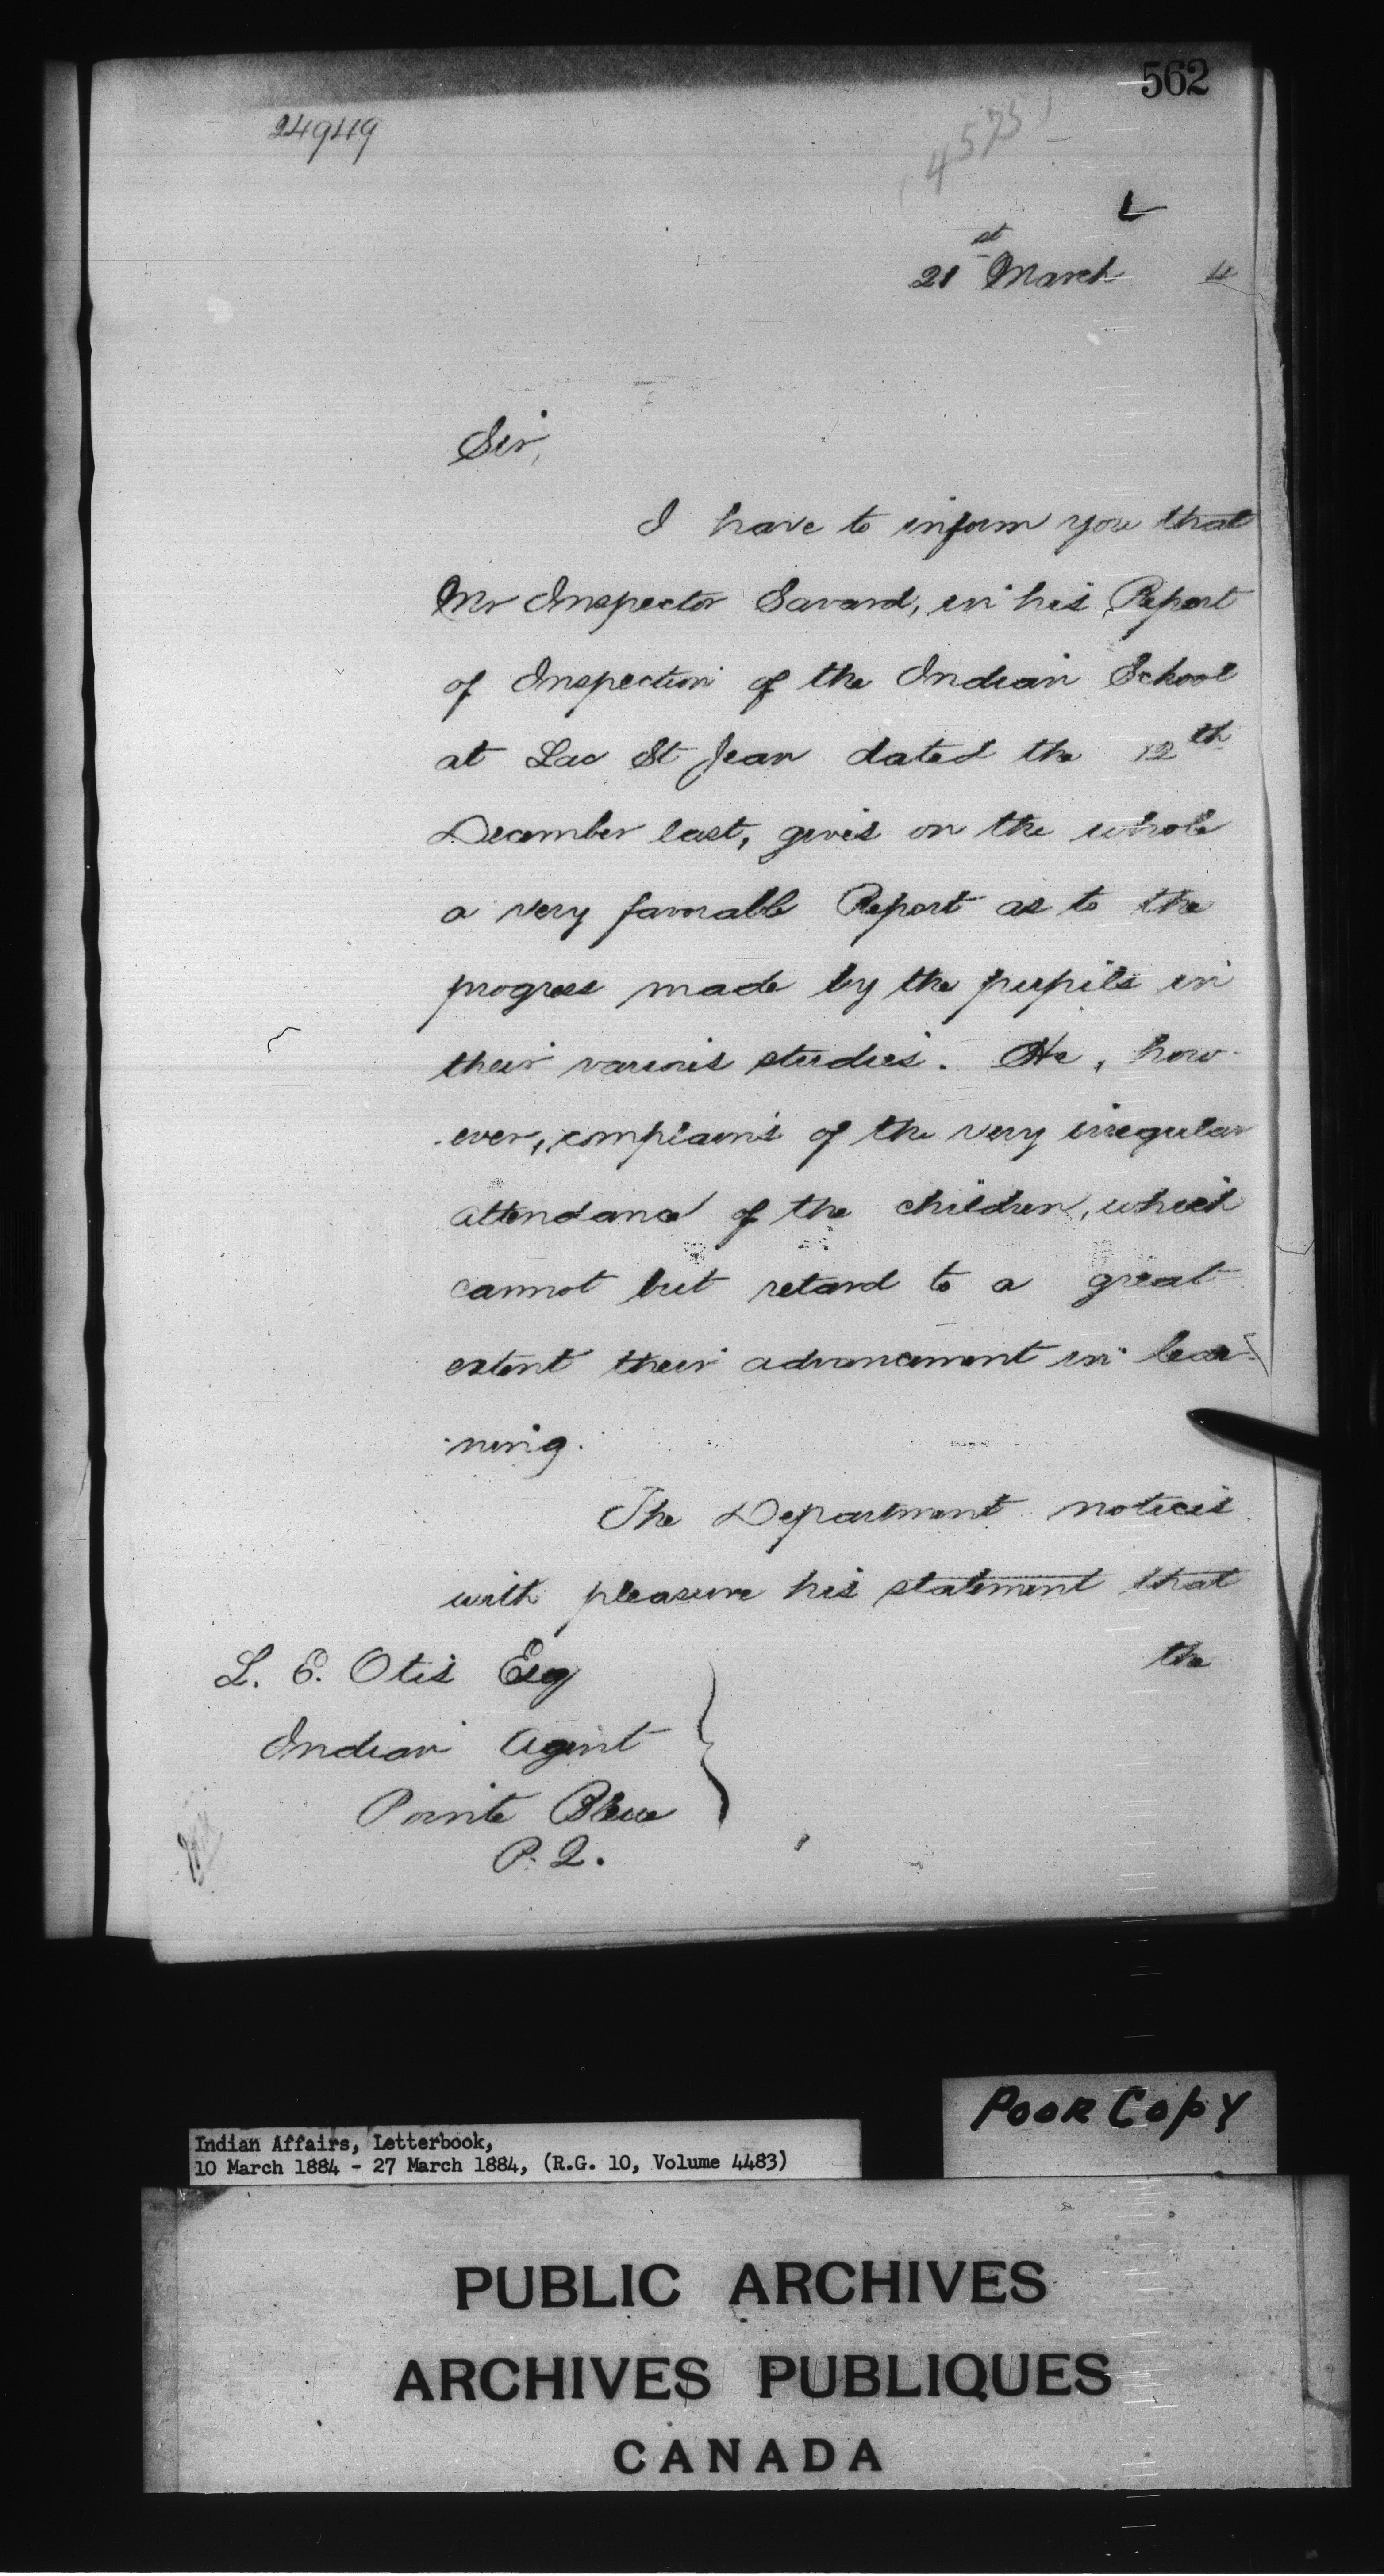 562
24949
(4575)
L
21st March 4
Sir,
I have to inform you that
Mr Inspector Savard, in his Report
of Inspection of the Indian School
at Lac St Jean dated the 12th
December last, gives on the whole
a very favorable Report as to the
progress made by the pupils in
their various studies. He, how-
-ever, complains of the very irregular
attendance of the children, which
cannot but retard to a great
extent their advancement in lear-
-ning.
The Department notices
with pleasure his statement that
the
L. E. Otis Esq
Indian Agent
Pointe Bleue
P. Q.
Poor Copy
Indian Affairs, Letterbook,
10 March 1884 - 27 March 1884, (R.G. 10, Volume 4483)
PUBLIC ARCHIVES
ARCHIVES PUBLIQUES
CANADA